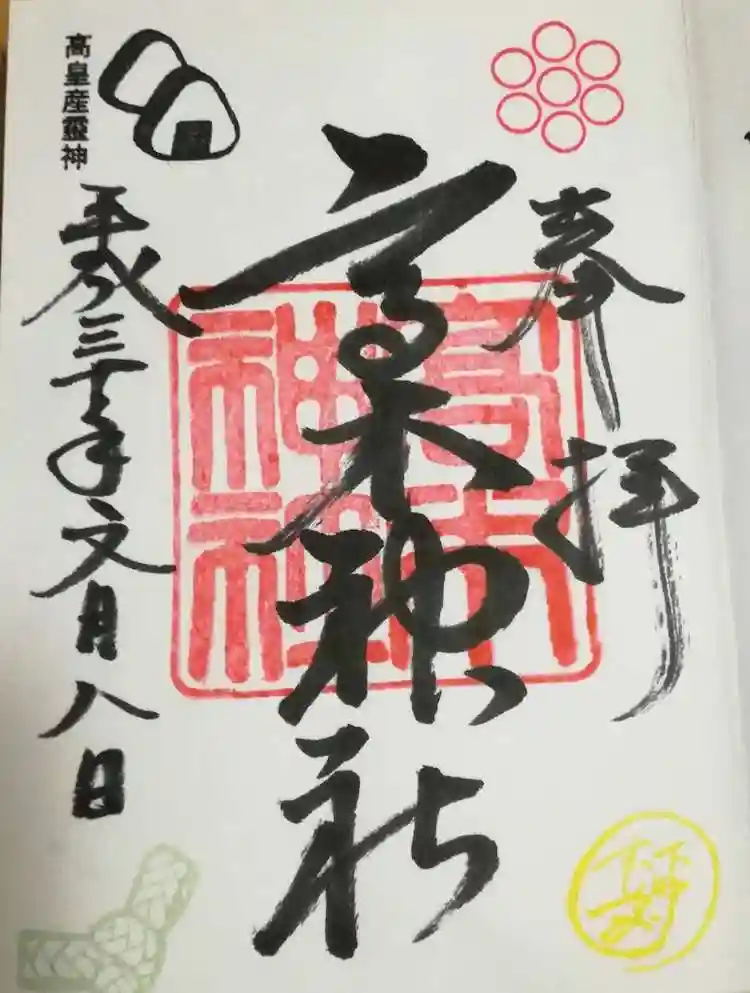 奉拝
高木神社
高木神社
高皇産霊神
平成三十年文月八日